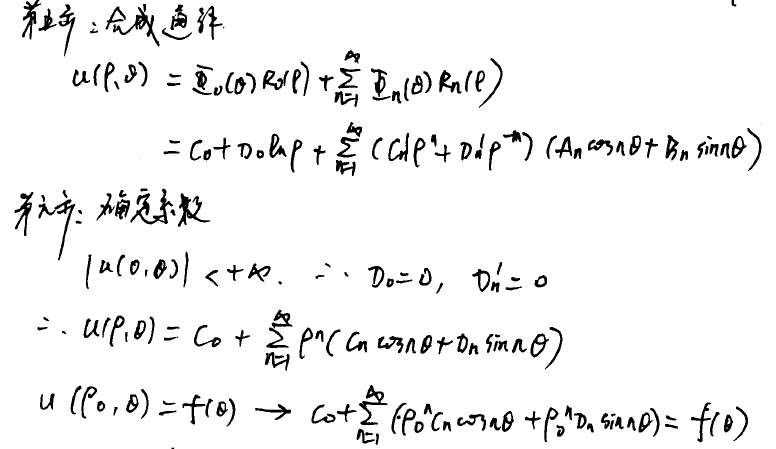 第五步：合成通解
u(ρ,θ) = Φ₀(θ)R₀(ρ) + ∑_{n=1}^{∞} Φₙ(θ)Rₙ(ρ)
= C₀ + D₀lnρ + ∑_{n=1}^{∞} (Cₙ'ρⁿ + Dₙ'ρ⁻ⁿ) (Aₙ cos nθ + Bₙ sin nθ)
第六步：确定系数
|u(0,θ)| < +∞. ∴ D₀=0, Dₙ'=0
∴ u(ρ,θ) = C₀ + ∑_{n=1}^{∞} ρⁿ(Cₙ cos nθ + Dₙ sin nθ)
u(ρ₀,θ) = f(θ) → C₀ + ∑_{n=1}^{∞} (ρ₀ⁿCₙ cos nθ + ρ₀ⁿDₙ sin nθ) = f(θ)